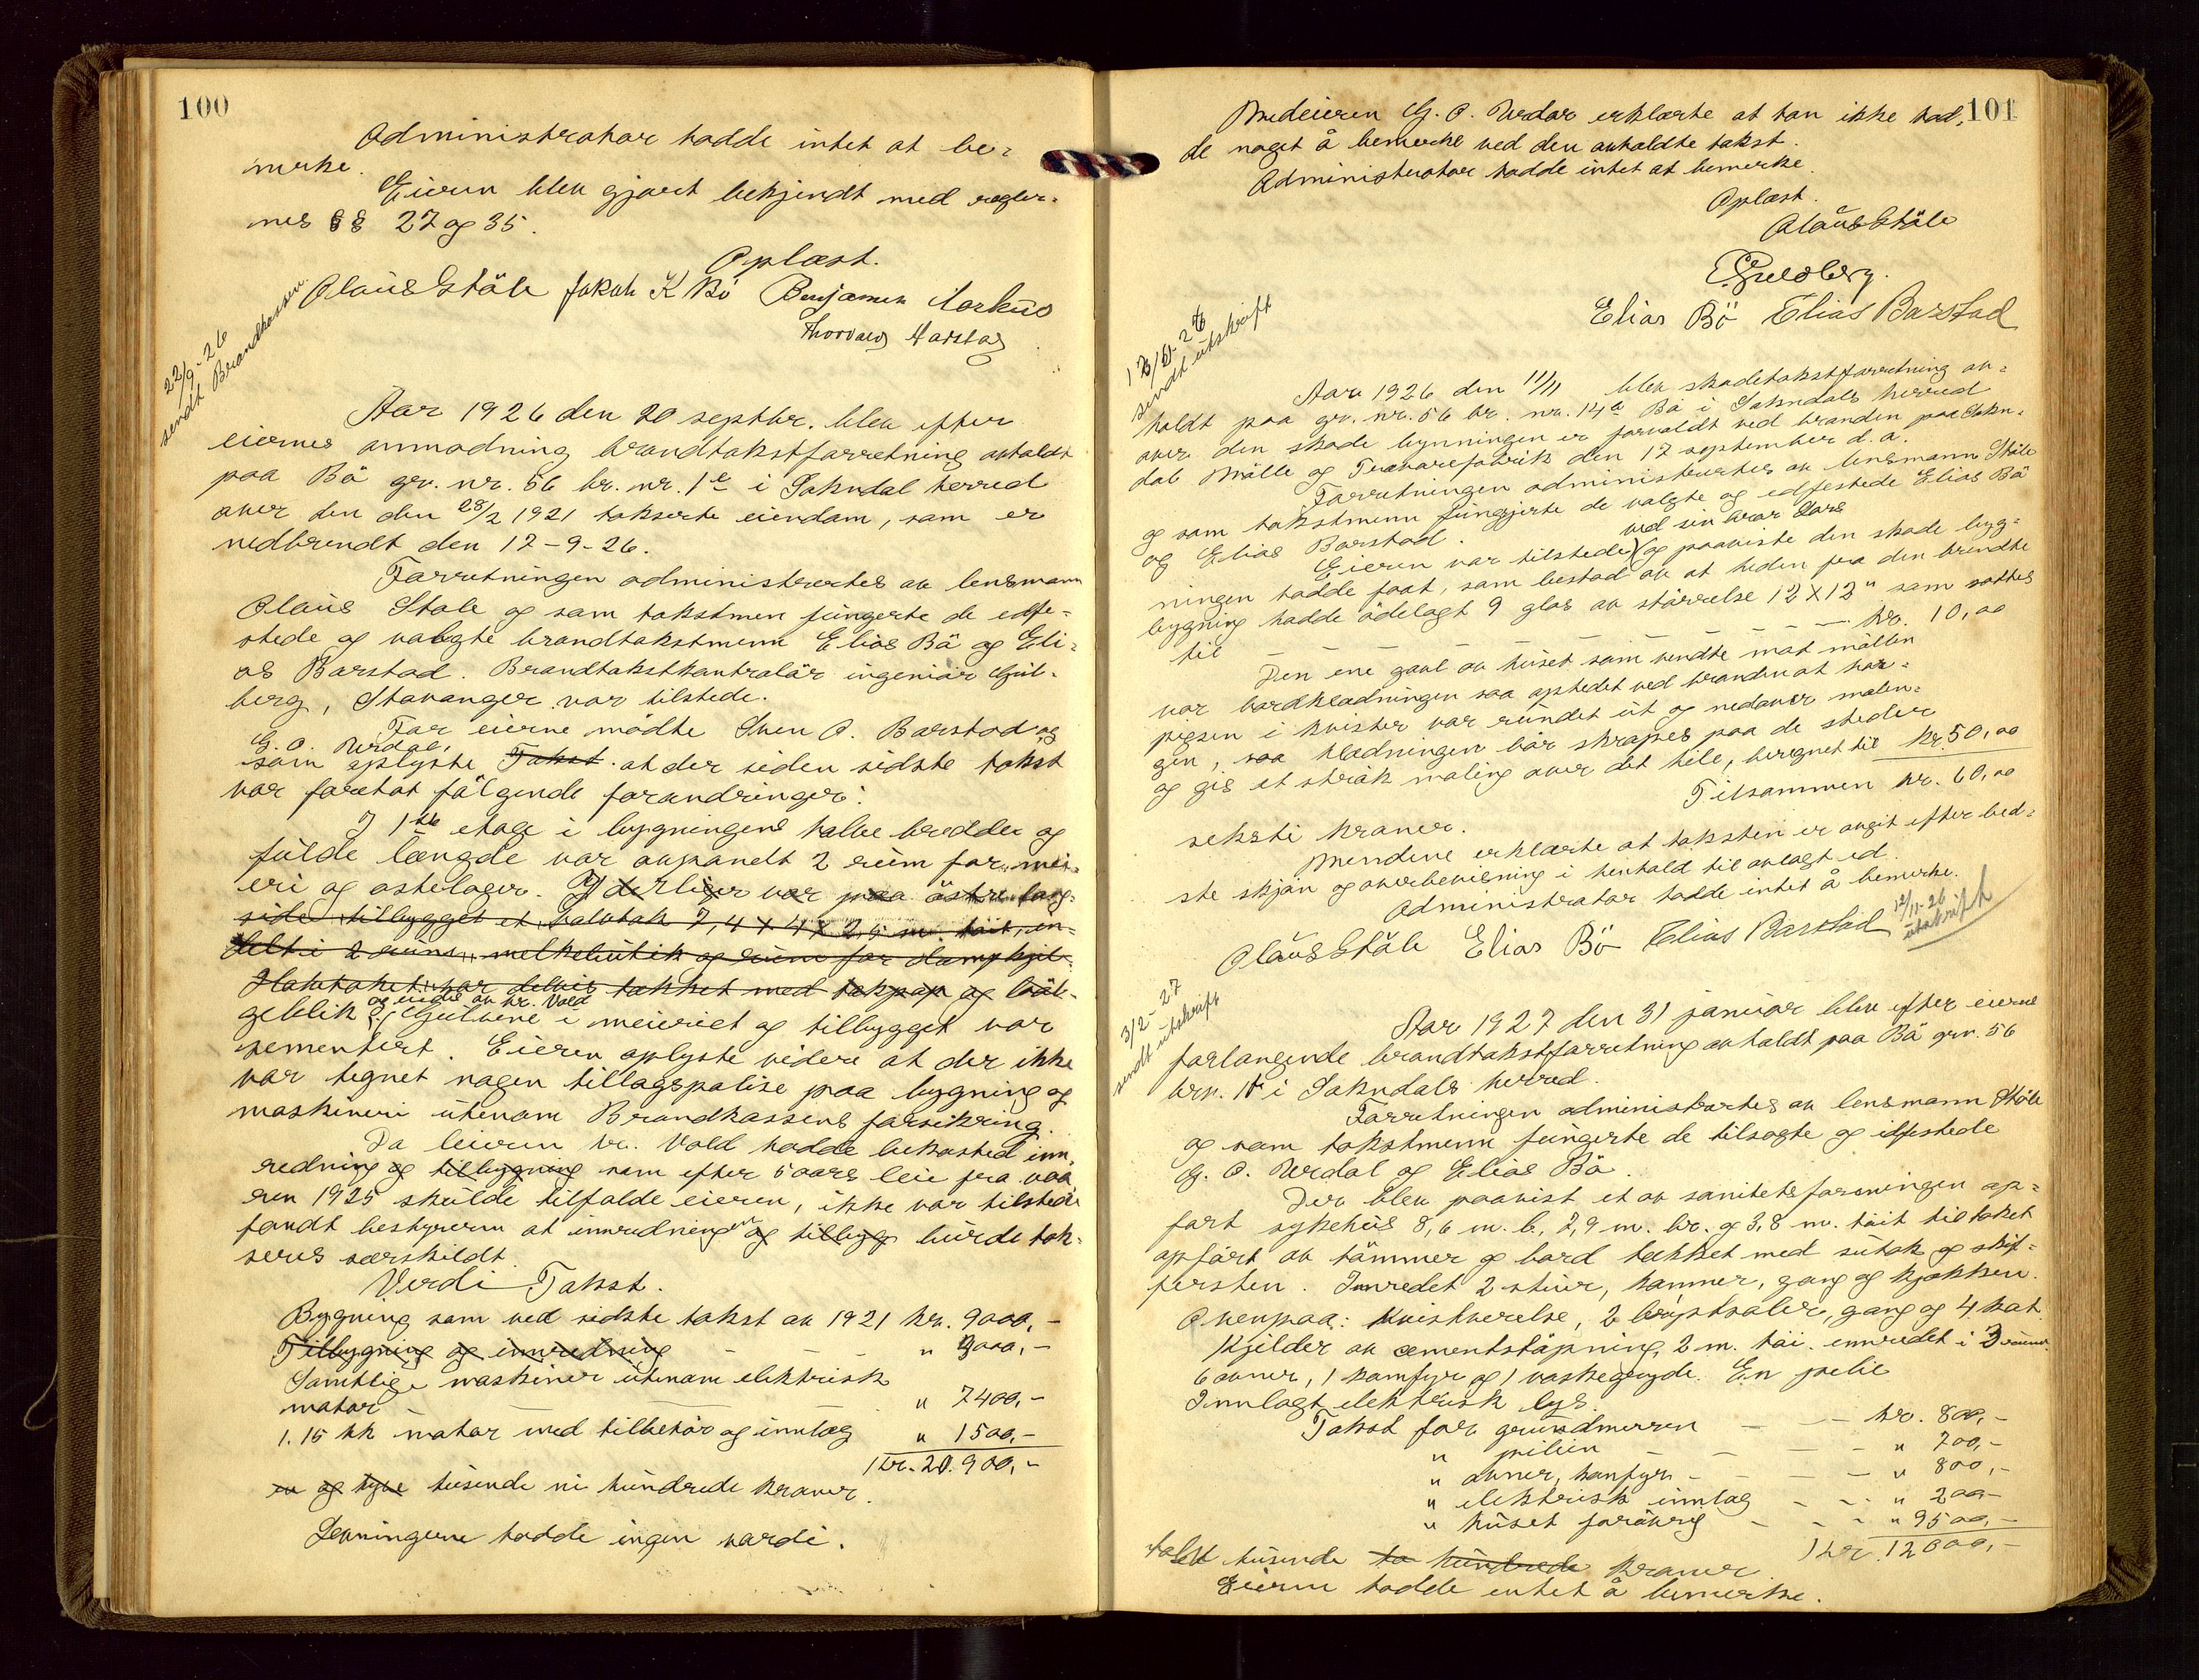 100
Administrator hadde intet at be-
merke.
Eieren blev gjort bekjendt med regler-
nes §§ 27 og 35.
Oplæst.
Olaus Ståle Jakob K Bö Benjamin Markus
Thorvald Aarstad
22/9-26
sendt Brandkassen
Aar 1926 den 20 septbr. blev efter
eiernes anmodning brandtakstforretning avholdt
paa Bö grv. nr. 56 br. nr. 1e i Sokndal herred
over den den 28/2 1921 takserte eiendom, som er
nedbrendt den 17-9-26.
Forretningen administrertes av lensmann
Olaus Ståle og som takstmen fungerte de edfe-
stede og valgte brandtakstmenn Elias Bö og Eli-
as Barstad. Brandtakstkontrolör ingeniör Gul-
berg, Stavanger var tilstede.
For eierne mödte Sven O. Barstad og
G. O. Urdal,
som oplyste Takst at der siden sidste takst
var foretat fölgende forandringer:
I 1ste etage i bygningens halve bredde og
fulde længde var avpanelt 2 rum for mei-
eri og ostelager. Yderliger var paa östre lang-
side tilbygget et halvtak 7,4 x 4 x 2,5 m. höit, in-
delt i 2 rum, melkebutik og rum for dampkjel.
Halvtaket var delvis tækket med takpap og böl-
geblik og eiedes av hr. Vold Gulvene i meieriet og tilbygget var
sementert. Eieren oplyste videre at der ikke
var tegnet nogen tillægspolise paa bygning og
maskineri utenom Brandkassens forsikring.
Da leieren hr. Vold hadde bekosted inn-
redning og tilbygning som efter 5 aars leie fra vaa-
ren 1925 skulde tilfalde eieren, ikke var tilstede
fandt bestyreren at innredningen og tilbygg burde tak-
seres særskildt.
Verdi Takst.
Bygning som ved sidste takst av 1921 kr. 9000,-
Tilbygning og innredning - - - " 3000,-
Samtlige maskiner utenom elektrisk
motor " 7400,-
1. 15 hk motor med tilbehör og inntag " 1500,-
kr. 20.900,-
en og tyve tusende ni hundrede kroner.
Levningerne hadde ingen værdi.
101
Medeieren G. O. Urdal erklærte at han ikke had-
de noget å bemerke ved den avholdte takst.
Administrator hadde intet at bemerke.
Oplæst.
Olaus Ståle
E Guldberg.
Elias Bö Elias Barstad
12/11-26
sendt utskrift
Aar 1926 den 11/11 blev skadetakstforretning av-
holdt paa grv. nr. 56 br. nr. 14a Bö i Sokndals herred
over den skade bynningen er forvoldt ved branden paa Sokn-
dal Mölle og Trævarefabrik den 17 september d. a.
Forretningen administrertes av lensmann Ståle
og som takstmenn fungerte de valgte og edfestede Elias Bö
og Elias Barstad.
ved sin bror Lars
Eieren var tilstede og paaviste den skade byg-
ningen hadde faat, som bestod av at heden fra den brendte
bygning hadde ödelagt 9 glas av störrelse 12 x 12" som sattes
til - - - - - kr. 10,00
Den ene gavl av huset som vendte mot möllen
var bordklædningen saa ophedet ved branden at har-
pigsen i kvister var rundet ut og nedover malin-
gen, saa klædningen bör skrapes paa de steder
og gis et strök maling over det hele, beregnet til kr. 50,00
Tilsammen kr. 60,00
seksti kroner.
Mendene erklærte at taksten er avgit efter bed-
ste skjön og overbevisning i henhold til avlagt ed.
Administrator hadde intet å bemerke.
12/11-26
utskrift
Olaus Ståle Elias Bö Elias Barstad
3/2-27
sendt utskrift
Aar 1927 den 31 januar blev efter eierens
forlangende brandtakstforretning avholdt paa Bö grn. 56
brn. 1 i Sokndals herred.
Forretningen administrertes av lensmann Ståle
og som takstmenn fungerte de tilsagte og edfestede
G. O. Urdal og Elias Bö.
Der blev paavist et av sanitetsforeningen op-
fört sykehus 8,6 m. l., 7,9 m. br. og 3,8 m. höit til taket
opfört av tömmer og bord tækket med sutak og skif-
ersten. Innredet 2 stuer, kammer, gang og kjökken.
Ovenpaa: kvistværelse, 2 brystsaler, gang og 4 kot
Kjelder av cementstöpning, 2 m. höi. innredet i 3 rum.
6 ovner, 1 komfyr og 1 vaskegryde. En pelie
Innlagt elektrisk lys.
Takst for grundmuren - - kr. 800,-
" pilien - - - - " 700,-
" ovner, komfyr - - - " 800,-
" elektrisk inntag - - " 200-
" huset forövrig - - - " 9500,-
kr. 12000,-
tolv tusende to hundrede kroner
Eieren hadde intet å bemerke.